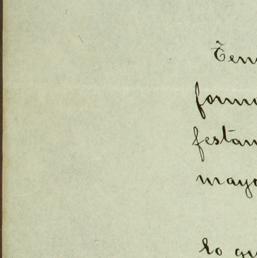 Ten
form
festan
mayo
lo qu